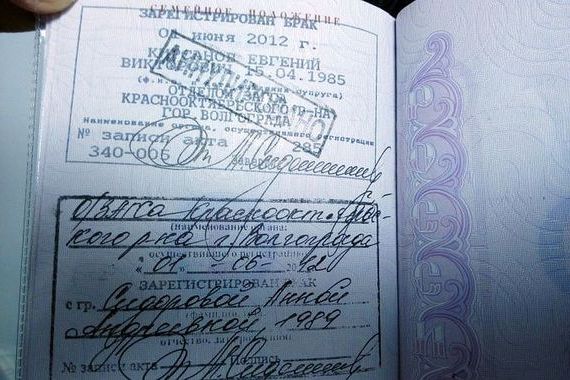 СЕМЕЙНОЕ ПОЛОЖЕНИЕ
ЗАРЕГИСТРИРОВАН БРАК
ИЮНЯ 2012 Г.
ЕВГЕНИЙ
15.04.1985
ОТДЕЛОМ ЗАГСА
КРАСНООКТЯБРЬСКОГО Р-НА
ГОР. ВОЛГОГРАДА
Наименование органа, осуществившего регистрацию
№ записи акта 285
340-006
О/ЗАГСа Краснооктябрьс-
кого р-на г. Волгограда
(наименование органа,
осуществившего регистрацию)
ЗАРЕГИСТРИРОВАН БРАК
с гр. Сидоровой Анной
Андреевной, 1989
отчество, дата рождения
№ записи акта Подпись